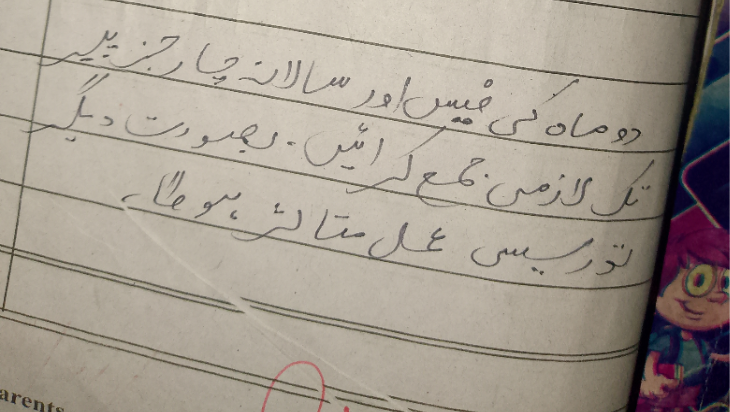 دو ماہ کی فیس اور سالانہ چارجز پیر
تک لازمی جمع کرائیں۔ بصورت دیگر
تدریسی عمل متاثر ہوگا۔
arents